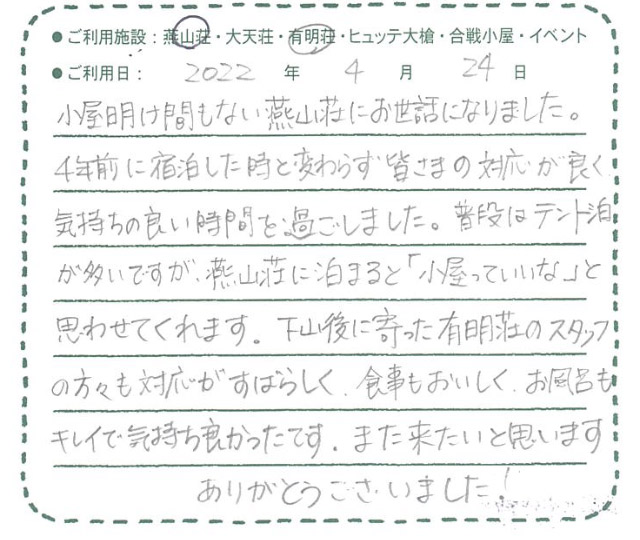 ●ご利用施設：燕山荘・大天荘・有明荘・ヒュッテ大槍・合戦小屋・イベント
●ご利用日： 2022 年 4 月 24 日
小屋明け間もない燕山荘にお世話になりました。
4年前に宿泊した時と変わらず皆さまの対応が良く
気持ちの良い時間を過ごしました。普段はテント泊
が多いですが、燕山荘に泊まると「小屋っていいな」と
思わせてくれます。下山後に寄った有明荘のスタッフ
の方々も対応がすばらしく、食事もおいしく、お風呂も
キレイで気持ち良かったです。また来たいと思います
ありがとうございました！